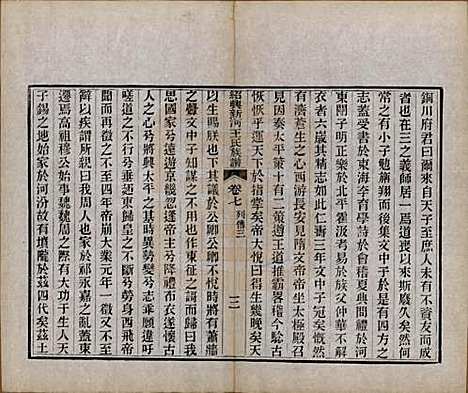 銅川府君曰爾來自天子至庶人未有不資友而成
者也在三之義師居一焉道喪以來斯廢久矣然何
常之有小子勉旃翔而後集文中子於是有四方之
志蓋受書於東海李育學詩於會稽夏典問禮於河
東關子明正樂於北平霍汲考易於族父仲華不解
衣者六歲其精志如此仁壽三年文中子冠矣慨然
有濟蒼生之心西游長安見隋文帝帝坐太極殿召
見因奏太平策十有二策遵王道推霸畧稽今驗古
恢恢乎運天下於指掌矣帝大悅曰得生幾晚矣天
以生賜朕也下其議於公卿公卿不悅時將有蕭牆
之釁文中子知謀之不用也作東征之歌而歸曰我
思國家兮遠游京畿忽逢帝王兮降禮布衣遂懷古
人之心兮將興太平之基時異事變兮志乖願違吁
嗟道之不行兮垂翅東歸皇之不斷兮勞身西飛帝
聞而再徵之不至四年帝崩大業元年一徵又不至
辭以疾謂所親曰我周人也家於祁永嘉之亂蓋東
遷焉高祖穆公始事魏魏周之際有大功於生人天
子錫之地始家於河汾故有墳隴於茲四代矣茲土
紹興新河王氏族譜
卷七
列傳三
三